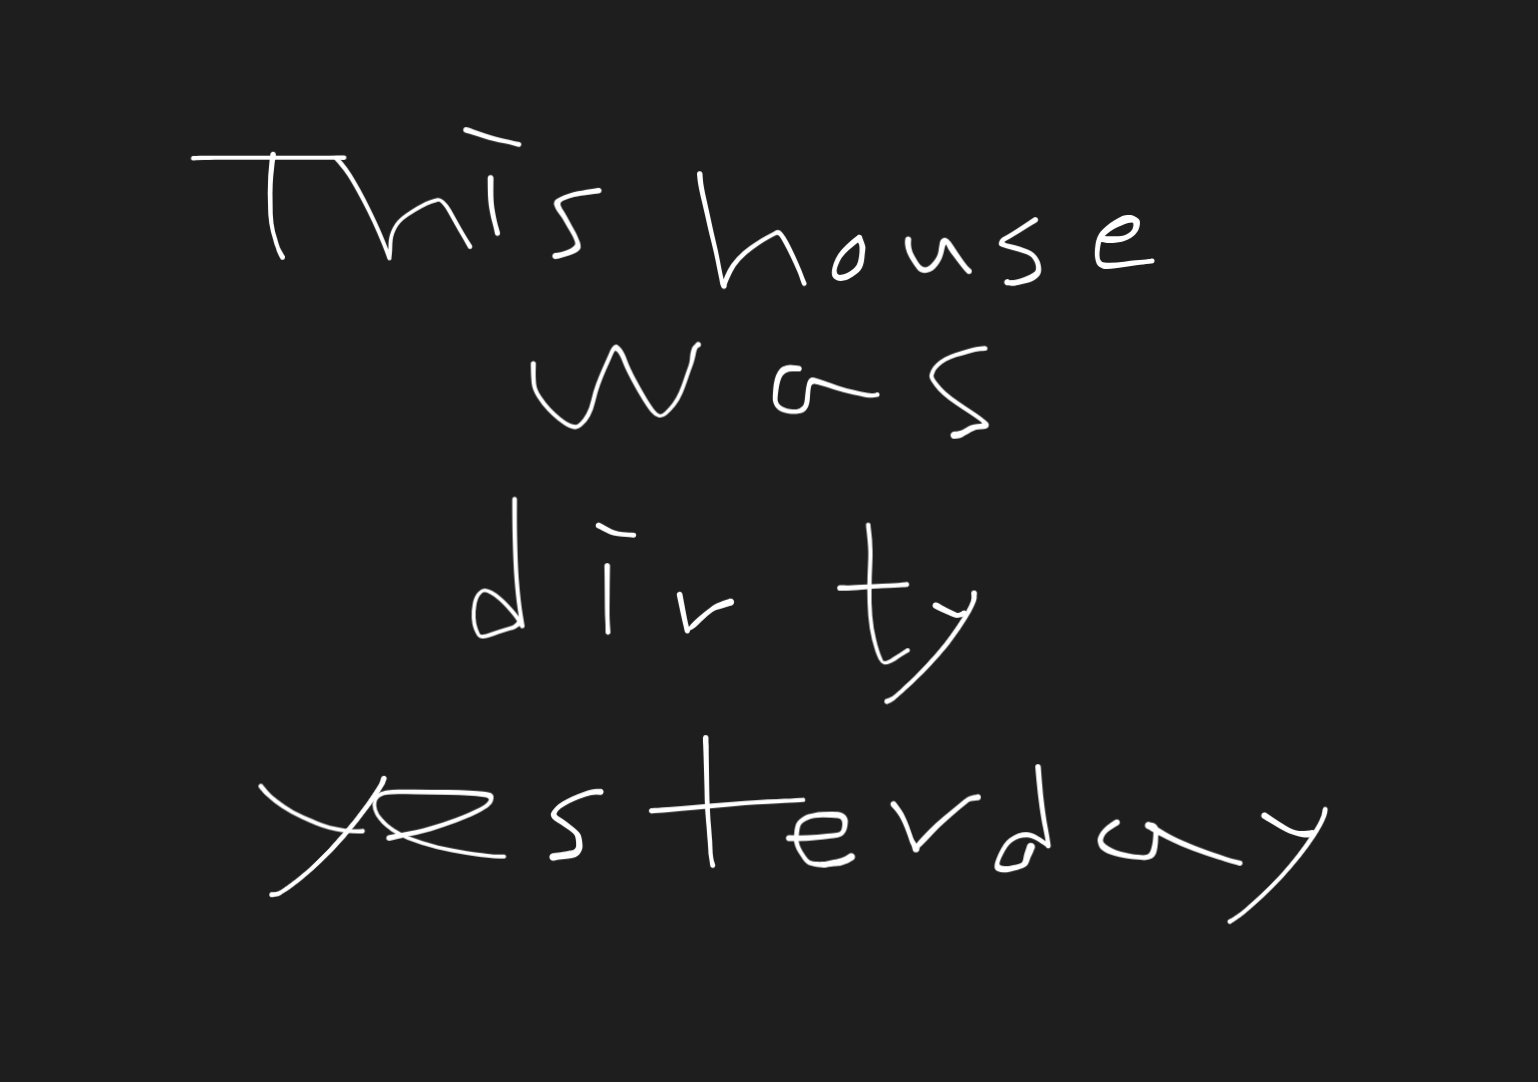 This house
was
dirty
yesterday